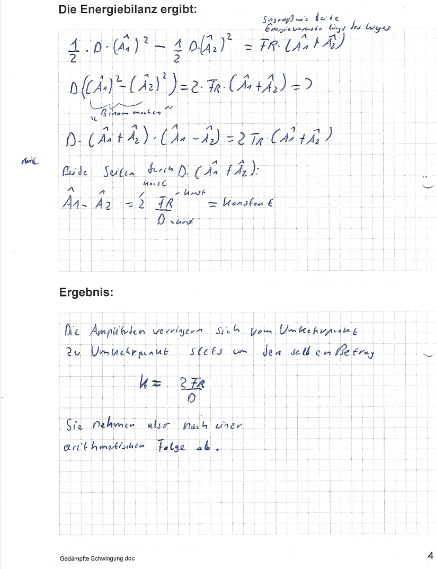 Die Energiebilanz ergibt:
so groß wie die
Energieverluste längs des Weges
1/2 · D · (Â1)² - 1/2 D·(Â2)² = FR · (Â1 + Â2)
D((Â1)² - (Â2)²) = 2 · FR · (Â1 + Â2) =>
D · (Â1 + Â2) · (Â1 - Â2) = 2 FR · (Â1 + Â2)
Beide Seiten durch D · (Â1 + Â2):
Â1 - Â2 = 2 FR / D = konstant
Ergebnis:
Die Amplituden verringern sich vom Umkehrpunkt
zu Umkehrpunkt stets um den selben Betrag
k = 2FR / D
Sie nehmen also nach einer
arithmetischen Folge ab.
Gedämpfte Schwingung.doc
4